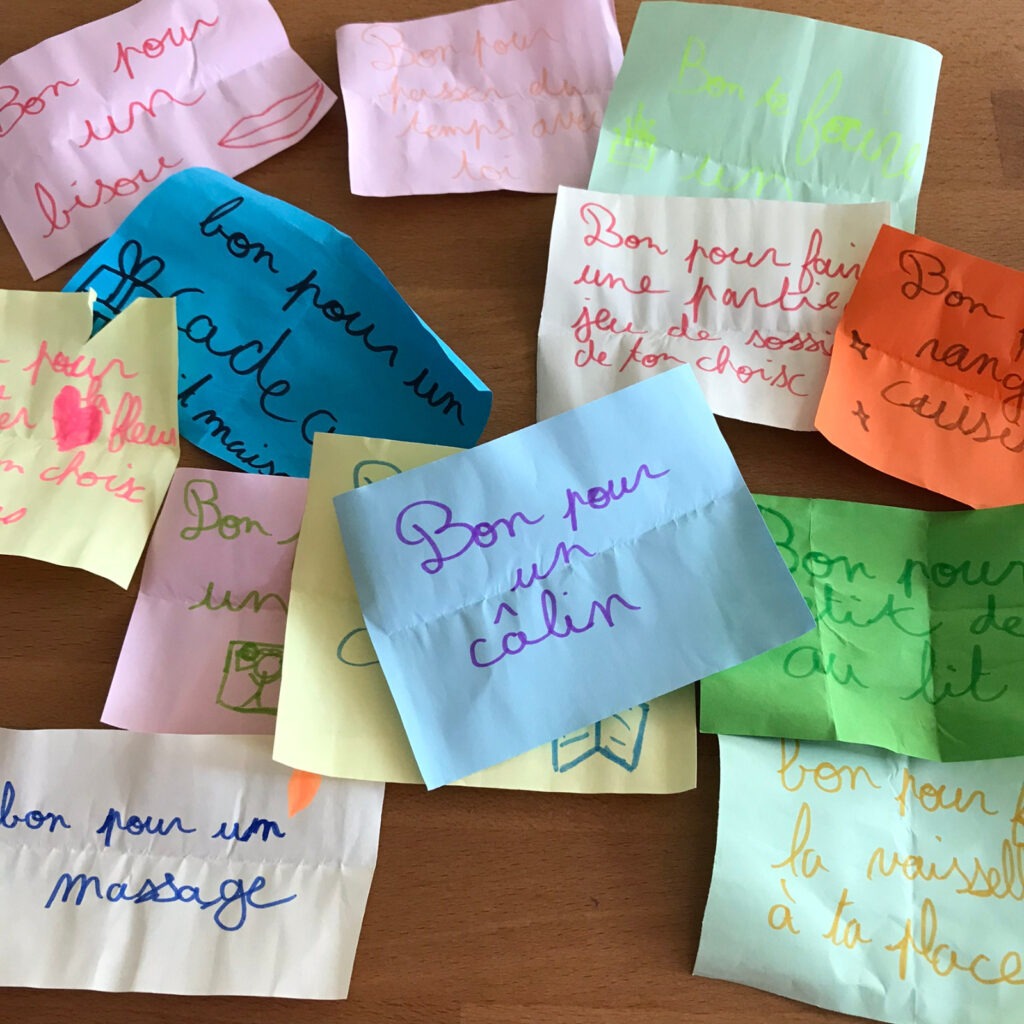 Bon pour
un
bisou
Bon pour
passer du
temps avec
toi
Bon te faire
un
bon pour un
Cade
t maiso
Bon pour fair
une partie
jeu de
de ton choix
Bon
rang
cuisi
pour
fleur
choix
Bon
un
Bon pour
un
câlin
Bon pour
de
au lit
bon pour un
massage
bon pour f
la vaissel
à ta place